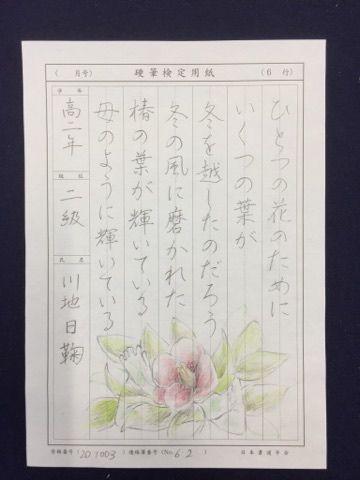 ( 月号) 硬筆検定用紙 (6 行)
ひとつの花のために
いくつの葉が
冬を越したのだろう
冬の風に磨かれた
椿の葉が輝いている
母のように輝いている
学年
高二年
段級
二級
氏名
川地日鞠
201003
(No. 6-2 )
日本書道学会